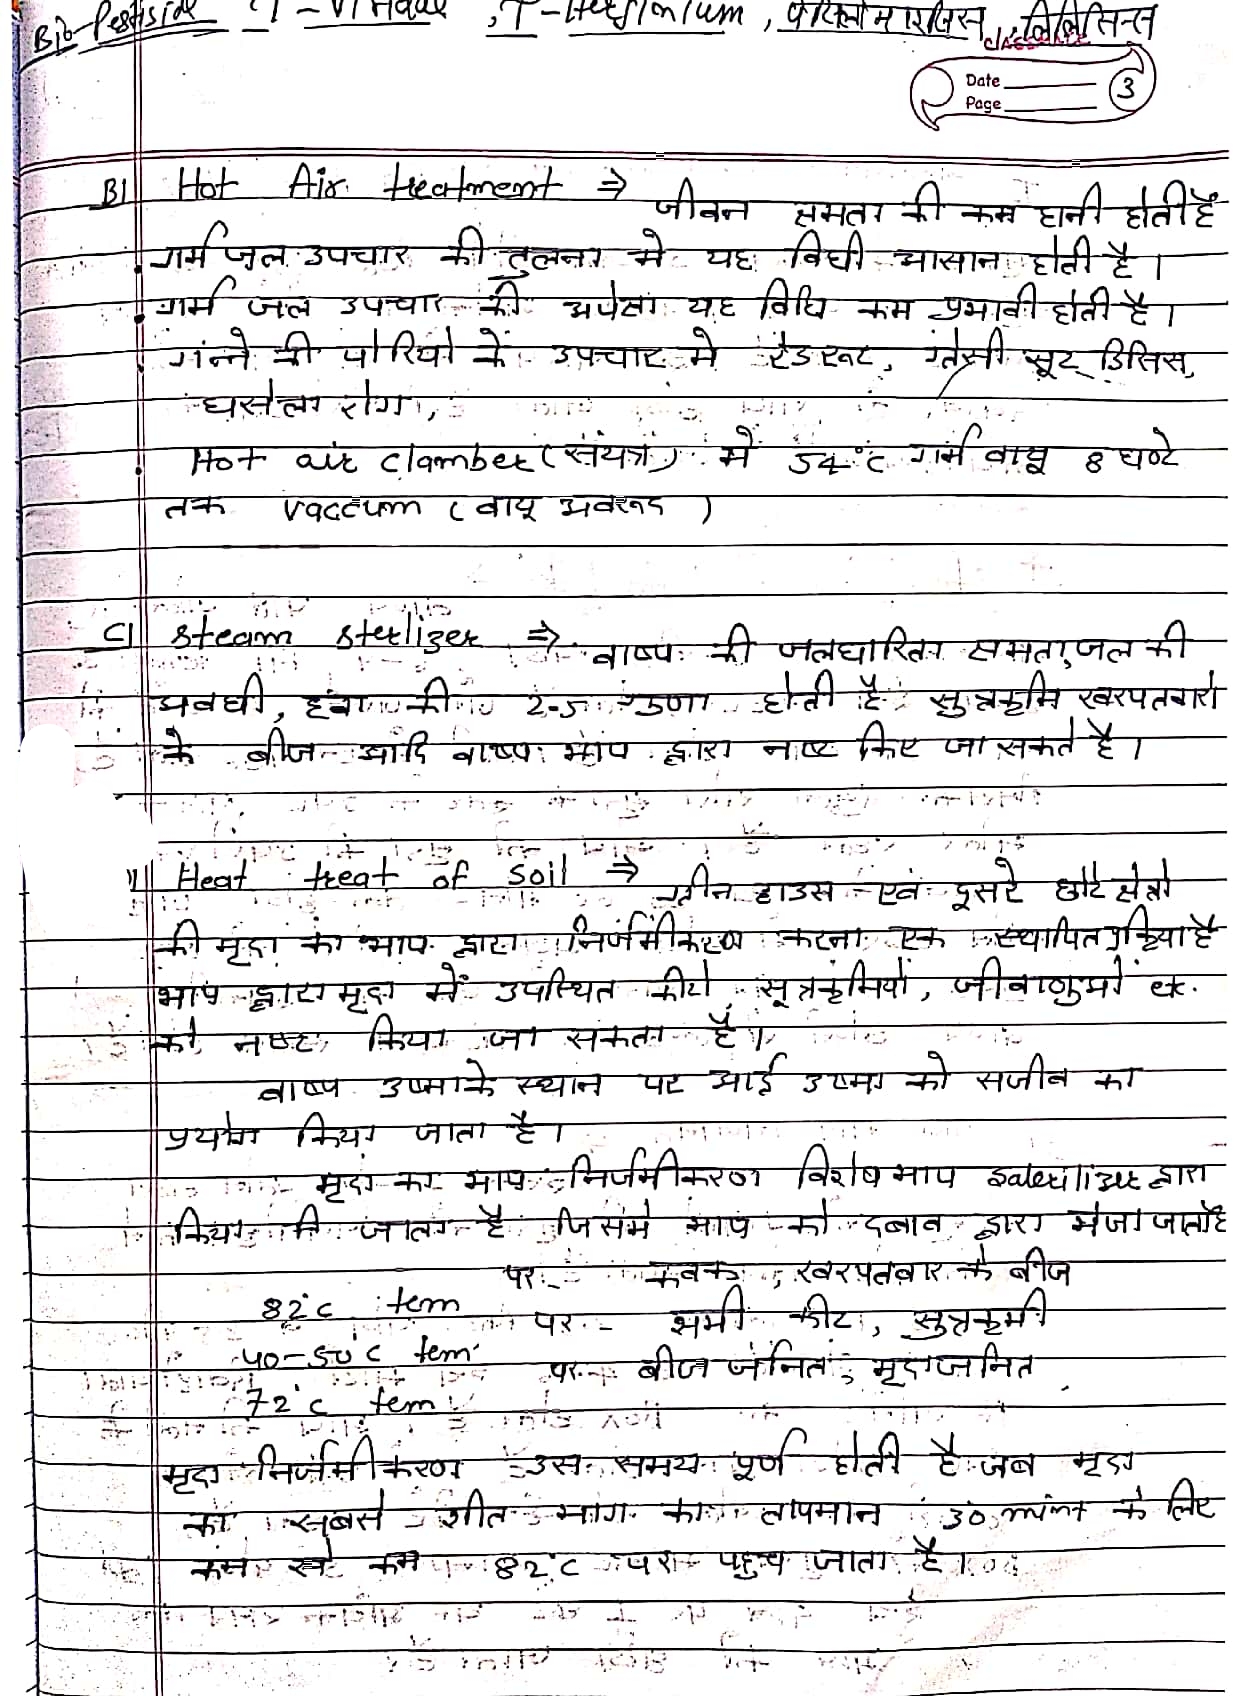 Bio-Pesticide T-Viridae, T-Harzionium, पेसिलोमाइसिस, लिलिसिन्स
classmate
Date
Page 3
B] Hot Air treatment ⇒ जीवन क्षमता की कम हानी होती हैं
गर्म जल उपचार की तुलना मे यह विधी आसान होती है।
गर्म जल उपचार की अपेक्षा यह विधि कम प्रभावी होती है।
गन्ने की पोरियो के उपचार मे रेडरूट, ग्रेसी सूट डिसिस,
घसैला रोग,
Hot air clamber (संयत्र) में 54°C गर्म वायू 8 घण्टे
तक vaccum (वायू अवरूद)
C] steam sterlizer ⇒ वाष्प की जलधारिता क्षमता, जल की
अवधी, हवा की 2-5 गुणा होती है सुत्रकृमि खरपतवारो
के बीज आदि वाष्प भाप द्वारा नष्ट किए जा सकते है।
1] Heat treat of soil ⇒ ग्रीन हाउस एवं दूसरे छोटे क्षेत्रो
की मृदा का भाप द्वारा निर्जमीकरण करना एक स्थापित प्रक्रिया है
भाप द्वारा मृदा में उपस्थित कीटो, सूत्रकृमियों, जीवाणुओं etc.
को नष्ट किया जा सकता है।
वाष्प उष्मा के स्थान पर आर्द्र उष्मा को सजीव का
प्रयोग किया जाता है।
मृदा का भाप निर्जमीकरण विशेष भाप saterilizer द्वारा
किया की जाता है जिसमे भाप को दबाव द्वारा भेजा जाता है
82°C tem पर - कवक, खरपतवार के बीज
40-50°C tem पर - सभी कीट, सुत्रकृमी
72°C tem पर - बीज जनित, मृदाजनित
मृदा निर्जमीकरण उस समय पूर्ण होती है जब मृदा
का सबसे शीत भाग का तापमान 30 mint के लिए
कम से कम 82°C पर पहुच जाता है।